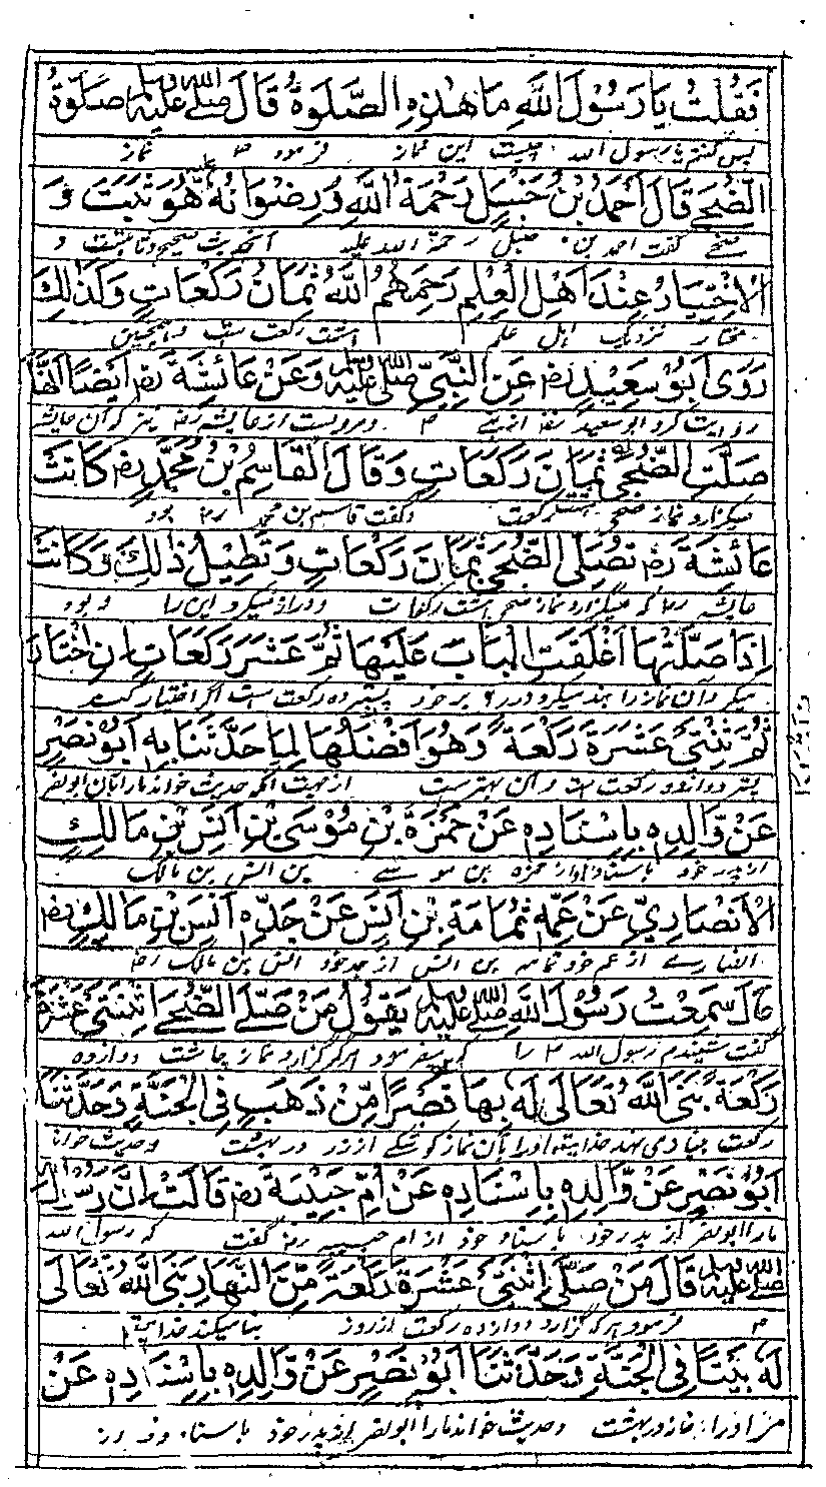 فَقُلْتُ يَا رَسُوْلَ اللهِ مَا هٰذِهِ الصَّلٰوةُ قَالَ صلى الله عليه وسلم صَلٰوةُ
پس گفتم یا رسول الله چیست این نماز فرمود نماز
الضُّحٰى قَالَ اَحْمَدُ بْنُ حَنْبَلٍ رَحْمَةُ اللهِ وَرِضْوَانُهُ عَلَيْهِ هُوَ ثَبَتَ وَ
ضحی گفت احمد بن حنبل رحمة الله علیه و
الْاِخْتِيَارُ عِنْدَ اَهْلِ الْعِلْمِ رَحِمَهُمُ اللهُ ثَمَانُ رَكَعَاتٍ وَكَذٰلِكَ
مختار نزدیک اهل علم هشت رکعت است و همچنین
رَوٰى اَبُوْ سَعِيْدٍ رض عَنِ النَّبِيِّ صلى الله عليه وسلم وَعَنْ عَائِشَةَ رض اَيْضًا اَنَّهَا
روایت کرد ابو سعید رض از نبی م و مرویست از عایشه رض نیز که آن عایشه
صَلَّتِ الضُّحٰى ثَمَانَ رَكَعَاتٍ وَقَالَ الْقَاسِمُ بْنُ مُحَمَّدٍ رض كَانَتْ
میگزارد نماز ضحی هشت رکعت و گفت قاسم بن محمد رض بود
عَائِشَةُ رض تُصَلِّى الضُّحٰى ثَمَانَ رَكَعَاتٍ وَتُطِيْلُ ذٰلِكَ وَكَانَتْ
عایشه رض که میگزارد نماز ضحی هشت رکعات و دراز میکرد این را و بود
اِذَا صَلَّتْهَا اَغْلَقَتِ الْبَابَ عَلَيْهَا ثُمَّ عَشَرَ رَكَعَاتٍ اِنِ اخْتَارَ
میکرد آن نماز را بند میکرد در بر خود پستر ده رکعت است اگر اختیار کند
ثُمَّ ثِنْتَىْ عَشَرَةَ رَكْعَةً وَهُوَ اَفْضَلُهَا لِمَا حَدَّثَنَا بِهِ اَبُوْ نَصْرٍ
پستر دوازده رکعت است و آن بهتر است از جهت آنکه حدیث خواند مارا بآن ابو نصر
عَنْ وَّالِدِهِ بِاِسْنَادِهِ عَنْ حَمْزَةَ بْنِ مُوْسٰى بْنِ اَنَسِ بْنِ مَالِكٍ
از پدر خود باسناد او از حمزه بن موسی بن انس بن مالک
الْاَنْصَارِيِّ عَنْ عَمِّهِ ثُمَامَةَ بْنِ اَنَسٍ عَنْ جَدِّهِ اَنَسِ بْنِ مَالِكٍ رض
انصاری از عم خود ثمامه بن انس از جد خود انس بن مالک رض
قَالَ سَمِعْتُ رَسُوْلَ اللهِ صلى الله عليه وسلم يَقُوْلُ مَنْ صَلَّى الضُّحٰى اثْنَتَىْ عَشْرَةَ
گفت شنیدم رسول الله م را که میفرمود هر که گزارد نماز چاشت دوازده
رَكْعَةً بَنَى اللهُ تَعَالٰى لَهُ بِهَا قَصْرًا مِّنْ ذَهَبٍ فِى الْجَنَّةِ وَحَدَّثَنَا
رکعت بنیاد می نهد خدایتعالی او را بآن نماز کوشکی از زر در بهشت و حدیث خواند
اَبُوْ نَصْرٍ عَنْ وَّالِدِهِ بِاِسْنَادِهِ عَنْ اُمِّ حَبِيْبَةَ رض قَالَتْ اِنَّ رَسُوْلَ اللهِ
مارا ابو نصر از پدر خود باسناد خود از ام حبیبه رض گفت که رسول الله
صلى الله عليه وسلم قَالَ مَنْ صَلَّى اثْنَتَىْ عَشْرَةَ رَكْعَةً مِّنَ النَّهَارِ بَنَى اللهُ تَعَالٰى
م فرمود هر که گزارد دوازده رکعت از روز بنا میکند خدایتعالی
لَهُ بَيْتًا فِى الْجَنَّةِ وَحَدَّثَنَا اَبُوْ نَصْرٍ عَنْ وَّالِدِهِ بِاِسْنَادِهِ عَنْ
مر او را خانه در بهشت و حدیث خواند مارا ابو نصر از پدر خود باسناد خود از